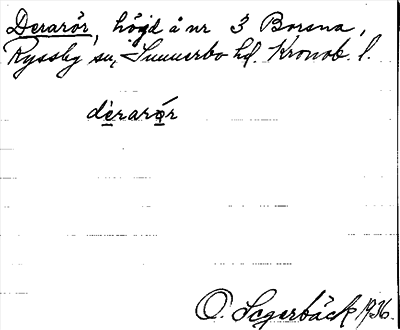 Derarör, höjd å nr 3 Borsna,
Ryssby sn, Sunnerbo hd. Kronob. l.
dèrarǿr
O. Segerbäck 1936.